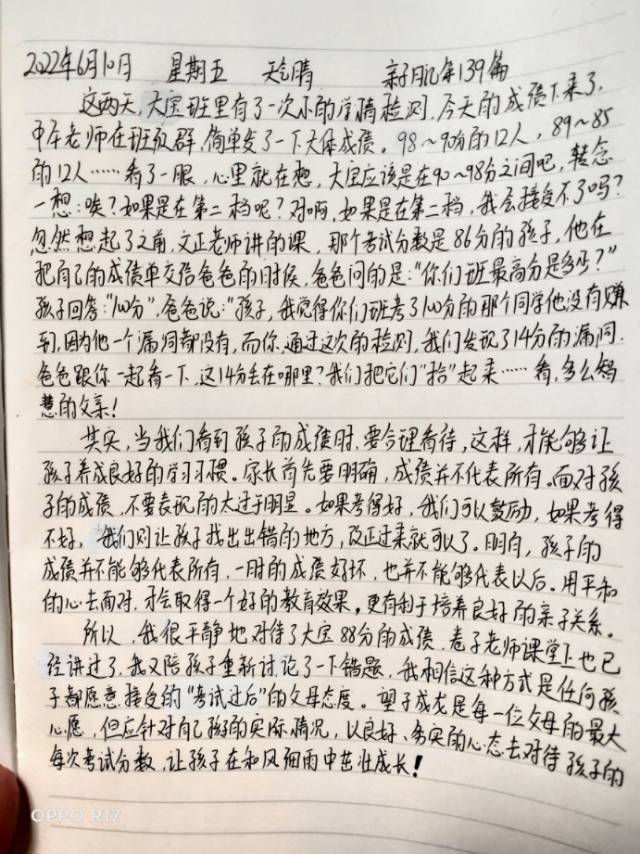 2022年6月10日 星期五 天气晴 亲子日记第139篇
这两天,大宝班里有了一次小的学情检测,今天的成绩下来了,
中午老师在班级群,简单发了一下大体成绩。98~90分的12人,89~85
的12人……看了一眼,心里就在想,大宝应该是在90~98分之间吧,转念
一想:唉?如果是在第二档呢?对啊,如果是在第二档,我会接受不了吗?
忽然想起了之前,文正老师讲的课,那个考试分数是86分的孩子,他在
把自己的成绩单交给爸爸的时候,爸爸问的是:"你们班最高分是多少?"
孩子回答:"100分",爸爸说:"孩子,我觉得你们班考了100分的那个同学他没有赚
到,因为他一个漏洞都没有,而你,通过这次的检测,我们发现了14分的漏洞.
爸爸跟你一起看一下,这14分丢在哪里?我们把它们"拾"起来……看,多么智
慧的父亲!
其实,当我们看到孩子的成绩时,要合理看待,这样,才能够让
孩子养成良好的学习习惯。家长首先要明确,成绩并不代表所有。面对孩
子的成绩,不要表现的太过于明显。如果考得好,我们可以鼓励,如果考得
不好,我们则让孩子找出出错的地方,改正过来就可以了。明白,孩子的
成绩并不能够代表所有,一时的成绩好坏,也并不能够代表以后。用平和
的心去面对,才会取得一个好的教育效果。更有利于培养良好的亲子关系。
所以,我很平静地对待了大宝88分的成绩,卷子老师课堂上也已
经讲过了,我又陪孩子重新讨论了一下错题,我相信这种方式是任何孩
子都愿意接受的"考试过后"的父母态度。望子成龙是每一位父母的最大
心愿,但应针对自己孩子的实际情况,以良好、务实的心态去对待孩子的
每次考试分数,让孩子在和风细雨中茁壮成长!
OPPO R17